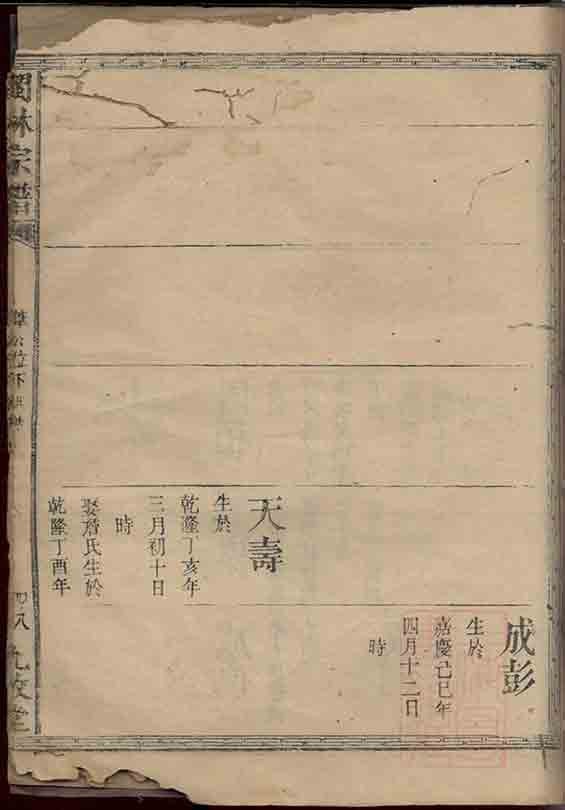 成彭
生於
嘉慶己巳年
四月十二日
時
天壽
生於
乾隆丁亥年
三月初十日
時
娶詹氏生於
乾隆丁酉年
林宗譜
公位下